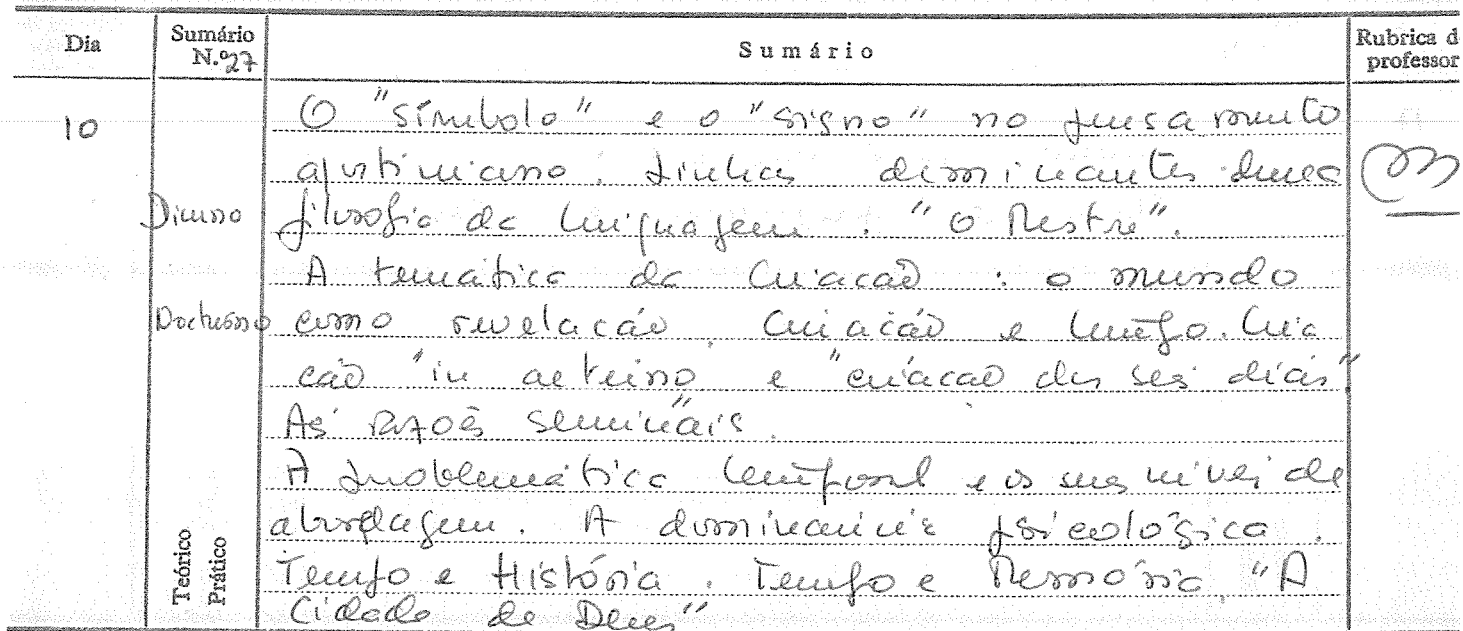 Dia
Sumário N.º 27
Sumário
Rubrica d professor
10
O "símbolo" e o "signo" no pensamento
agustiniano. Linhas dominantes duma
Diurno
filosofia da linguagem. "O Mestre".
A temática da Criação: o mundo
Nocturno
como revelação. Criação e tempo. Cria
ção "in aeterno" e "criação dos seis dias"
As razões seminais.
A problemática temporal e os seus níveis de
abordagem. A dominância psicológica.
Teórico
Prático
Tempo e História. Tempo e Memória. "A
Cidade de Deus"